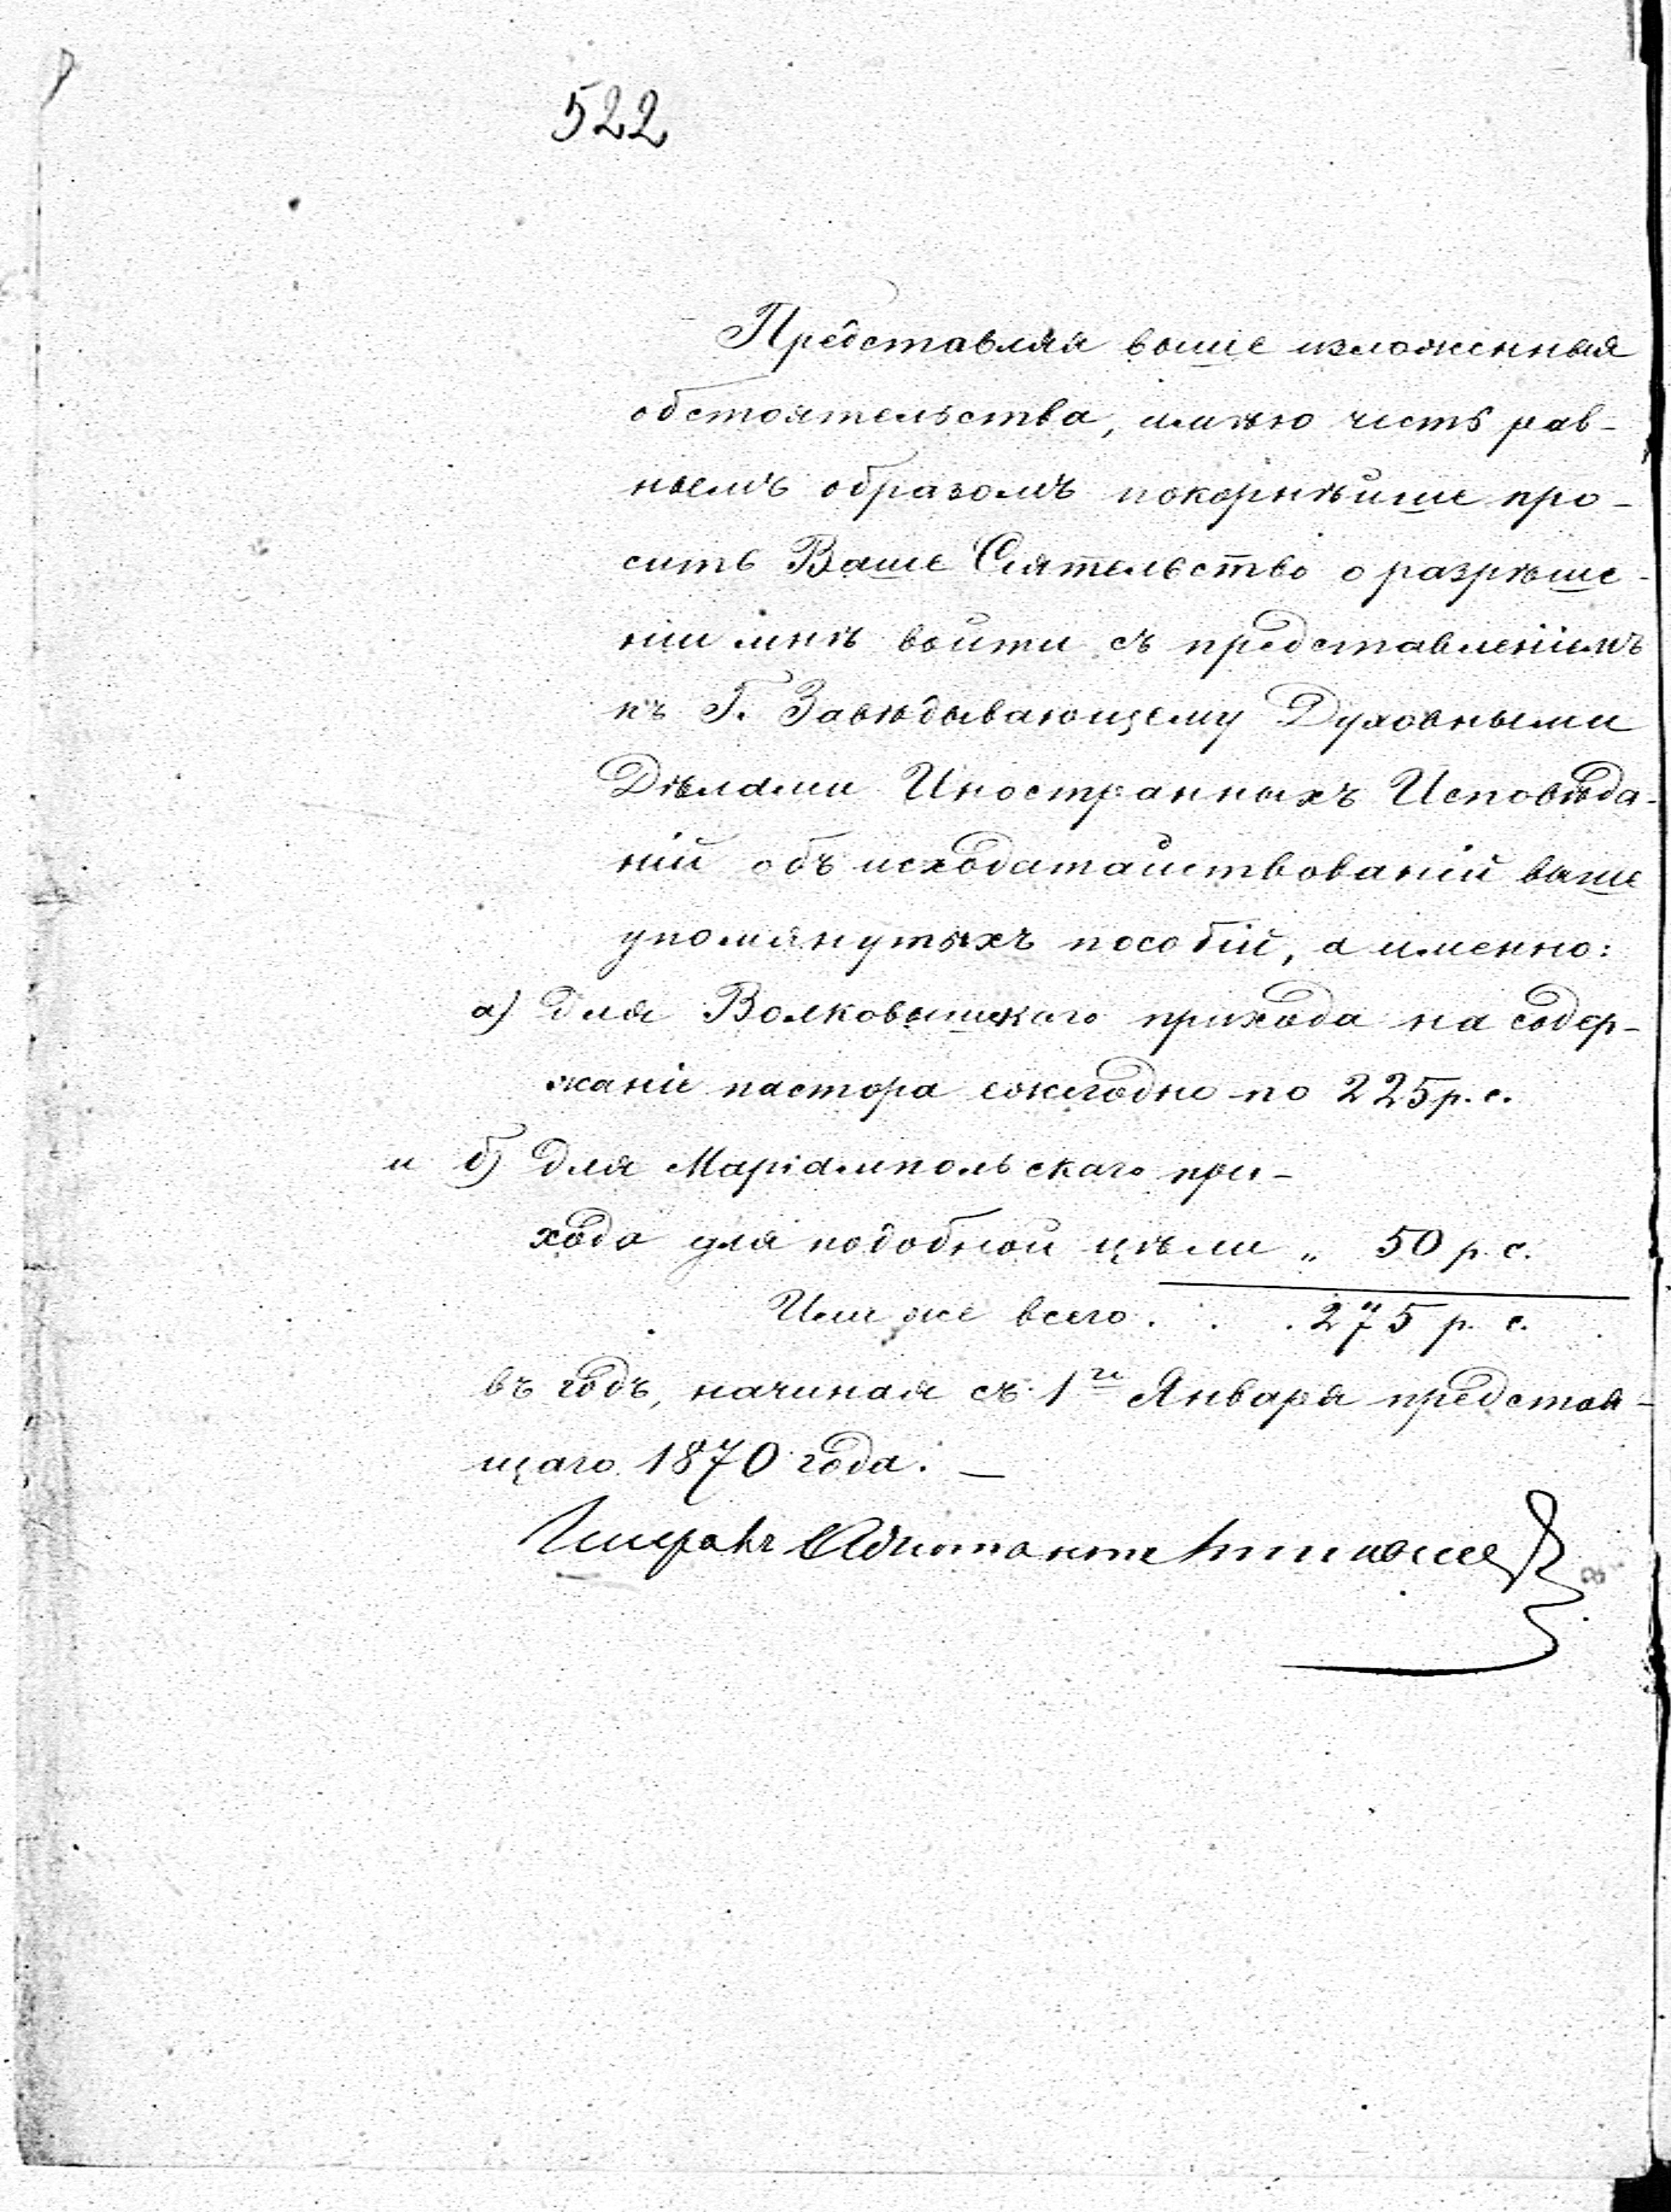 522
Представляя выше изложенныя
обстоятельства, имѣю честь рав-
нымъ образомъ покорнѣйше про-
сить Ваше Сіятельство о разрѣше-
ніи мнѣ войти съ представленіемъ
къ Г. Завѣдывающему Духовными
Дѣлами Иностранныхъ Исповѣда-
ній объ исходатайствованіи выше
упомянутыхъ пособій, а именно:
а) для Волковышскаго прихода на содер-
жаніе пастора ежегодно по 225 р. с.
и б) для Маріампольскаго при-
хода для подобной цѣли „ 50 р. с.
Или же всего . . . 275 р. с.
въ годъ, начиная съ 1го Января предстоя-
щаго 1870 года. —
Генералъ Адъютантъ